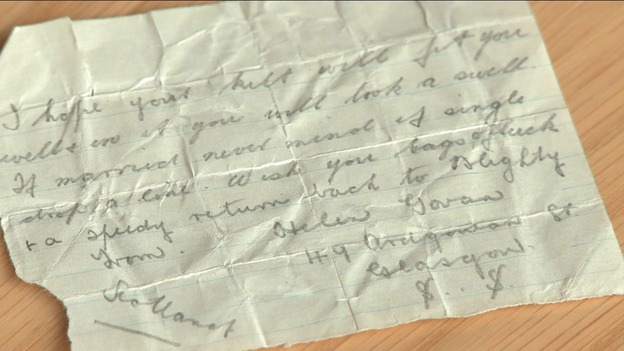 I hope your kilt will fit you
well & in it you will look a swell.
If married never mind if single
drop a line. Wish you bags of luck
& a speedy return back to Blighty
From. Helen Govan
49 Ardgowan St
Glasgow.
Scotland